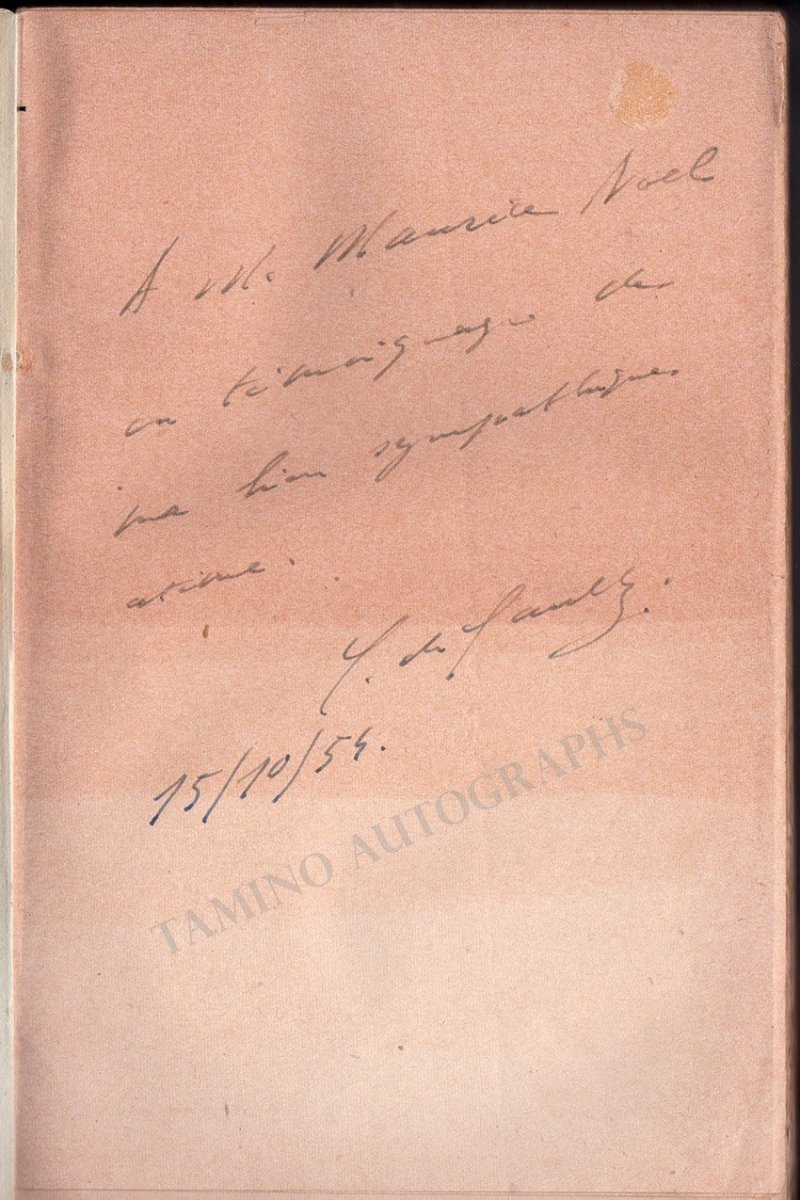 A M. Maurice Noël
en témoignage de
ma bien sympathique
estime.
C. de Gaulle.
15/10/54.
TAMINO AUTOGRAPHS